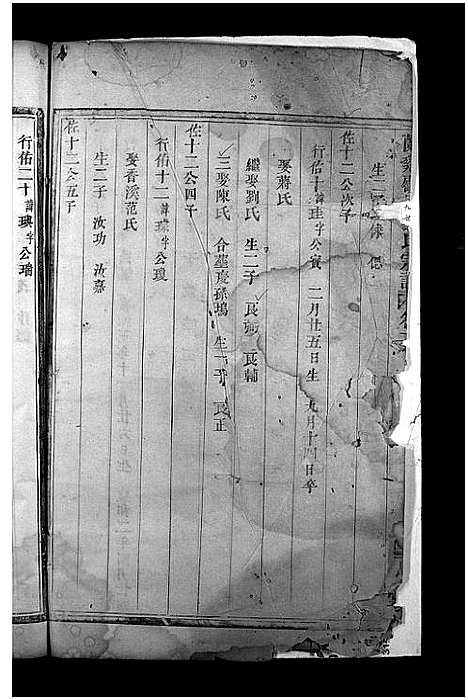 生二子 㑽 偲
佐十二公次子
行佑十 諱琟字公賓 二月廿五日生 九月十四日卒
娶蔣氏
繼娶劉氏 生二子 良弼 良輔
三娶陳氏 合塟慶孫塢 生一子 良正
佐十二公四子
行佑十二 諱字公瓊
娶香溪范氏
生二子 汝功 汝嘉
佐十二公五子
行佑二十 諱字公瑎